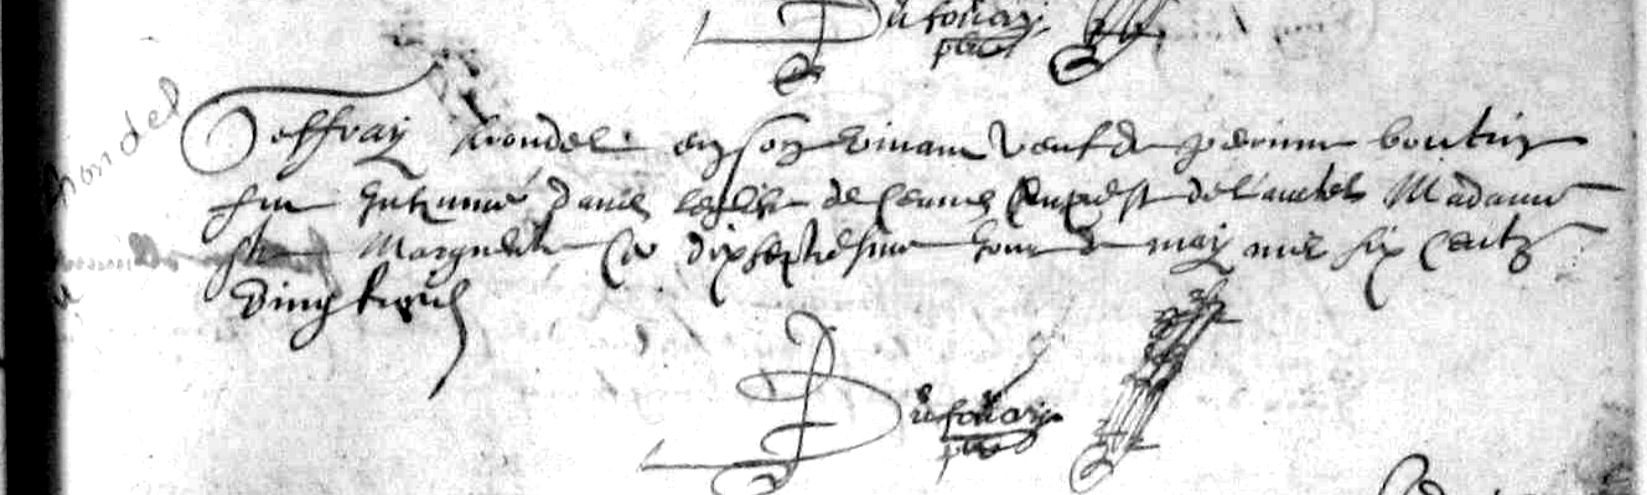 Dufouay
pbre
hondel
Jeffray hondel en son vivant veuf de perinne boutin
fut inhumé dans leglise de ceans aupres de l'autel Madame
ste Margueritte ce dixseptiesme jour de may mil six centz
vingt
Dufouay
pbre